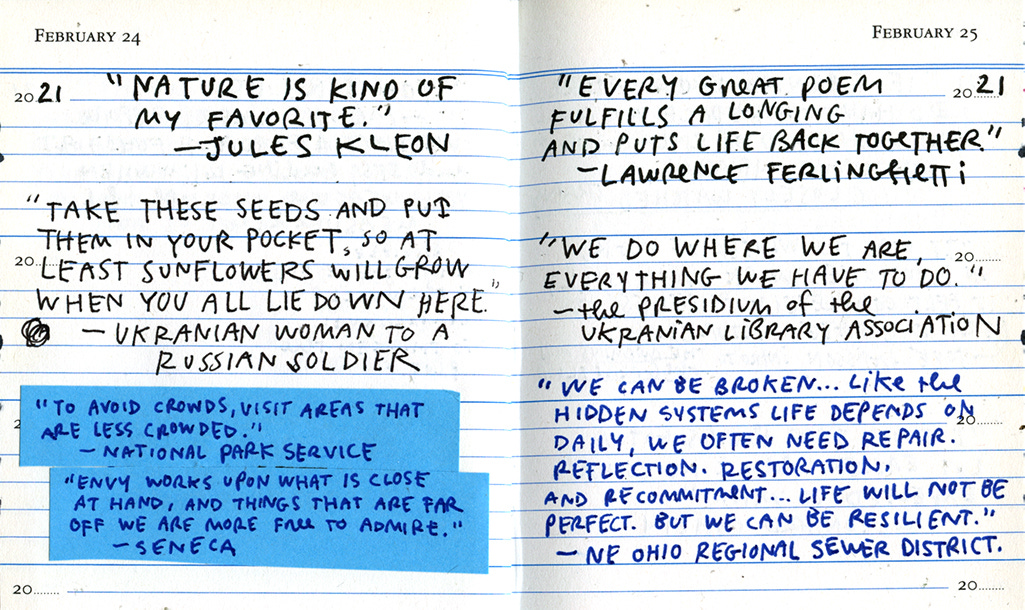 FEBRUARY 24
2021
"NATURE IS KIND OF
MY FAVORITE."
—JULES KLEON
"TAKE THESE SEEDS AND PUT
THEM IN YOUR POCKET, SO AT
20........
LEAST SUNFLOWERS WILL GROW
WHEN YOU ALL LIE DOWN HERE."
— UKRANIAN WOMAN TO A
RUSSIAN SOLDIER
"TO AVOID CROWDS, VISIT AREAS THAT
ARE LESS CROWDED."
— NATIONAL PARK SERVICE
"ENVY WORKS UPON WHAT IS CLOSE
AT HAND, AND THINGS THAT ARE FAR
OFF WE ARE MORE FREE TO ADMIRE."
— SENECA
20........
FEBRUARY 25
2021
"EVERY GREAT POEM
FULFILLS A LONGING
AND PUTS LIFE BACK TOGETHER."
—LAWRENCE FERLINGHETTI
"WE DO WHERE WE ARE,
20........
EVERYTHING WE HAVE TO DO."
— the PRESIDIUM of the
UKRANIAN LIBRARY ASSOCIATION
"WE CAN BE BROKEN... LIKE the
HIDDEN SYSTEMS LIFE DEPENDS ON
20........
DAILY, WE OFTEN NEED REPAIR.
REFLECTION. RESTORATION.
AND RECOMMITMENT... LIFE WILL NOT BE
PERFECT. BUT WE CAN BE RESILIENT."
— NE OHIO REGIONAL SEWER DISTRICT.
20........